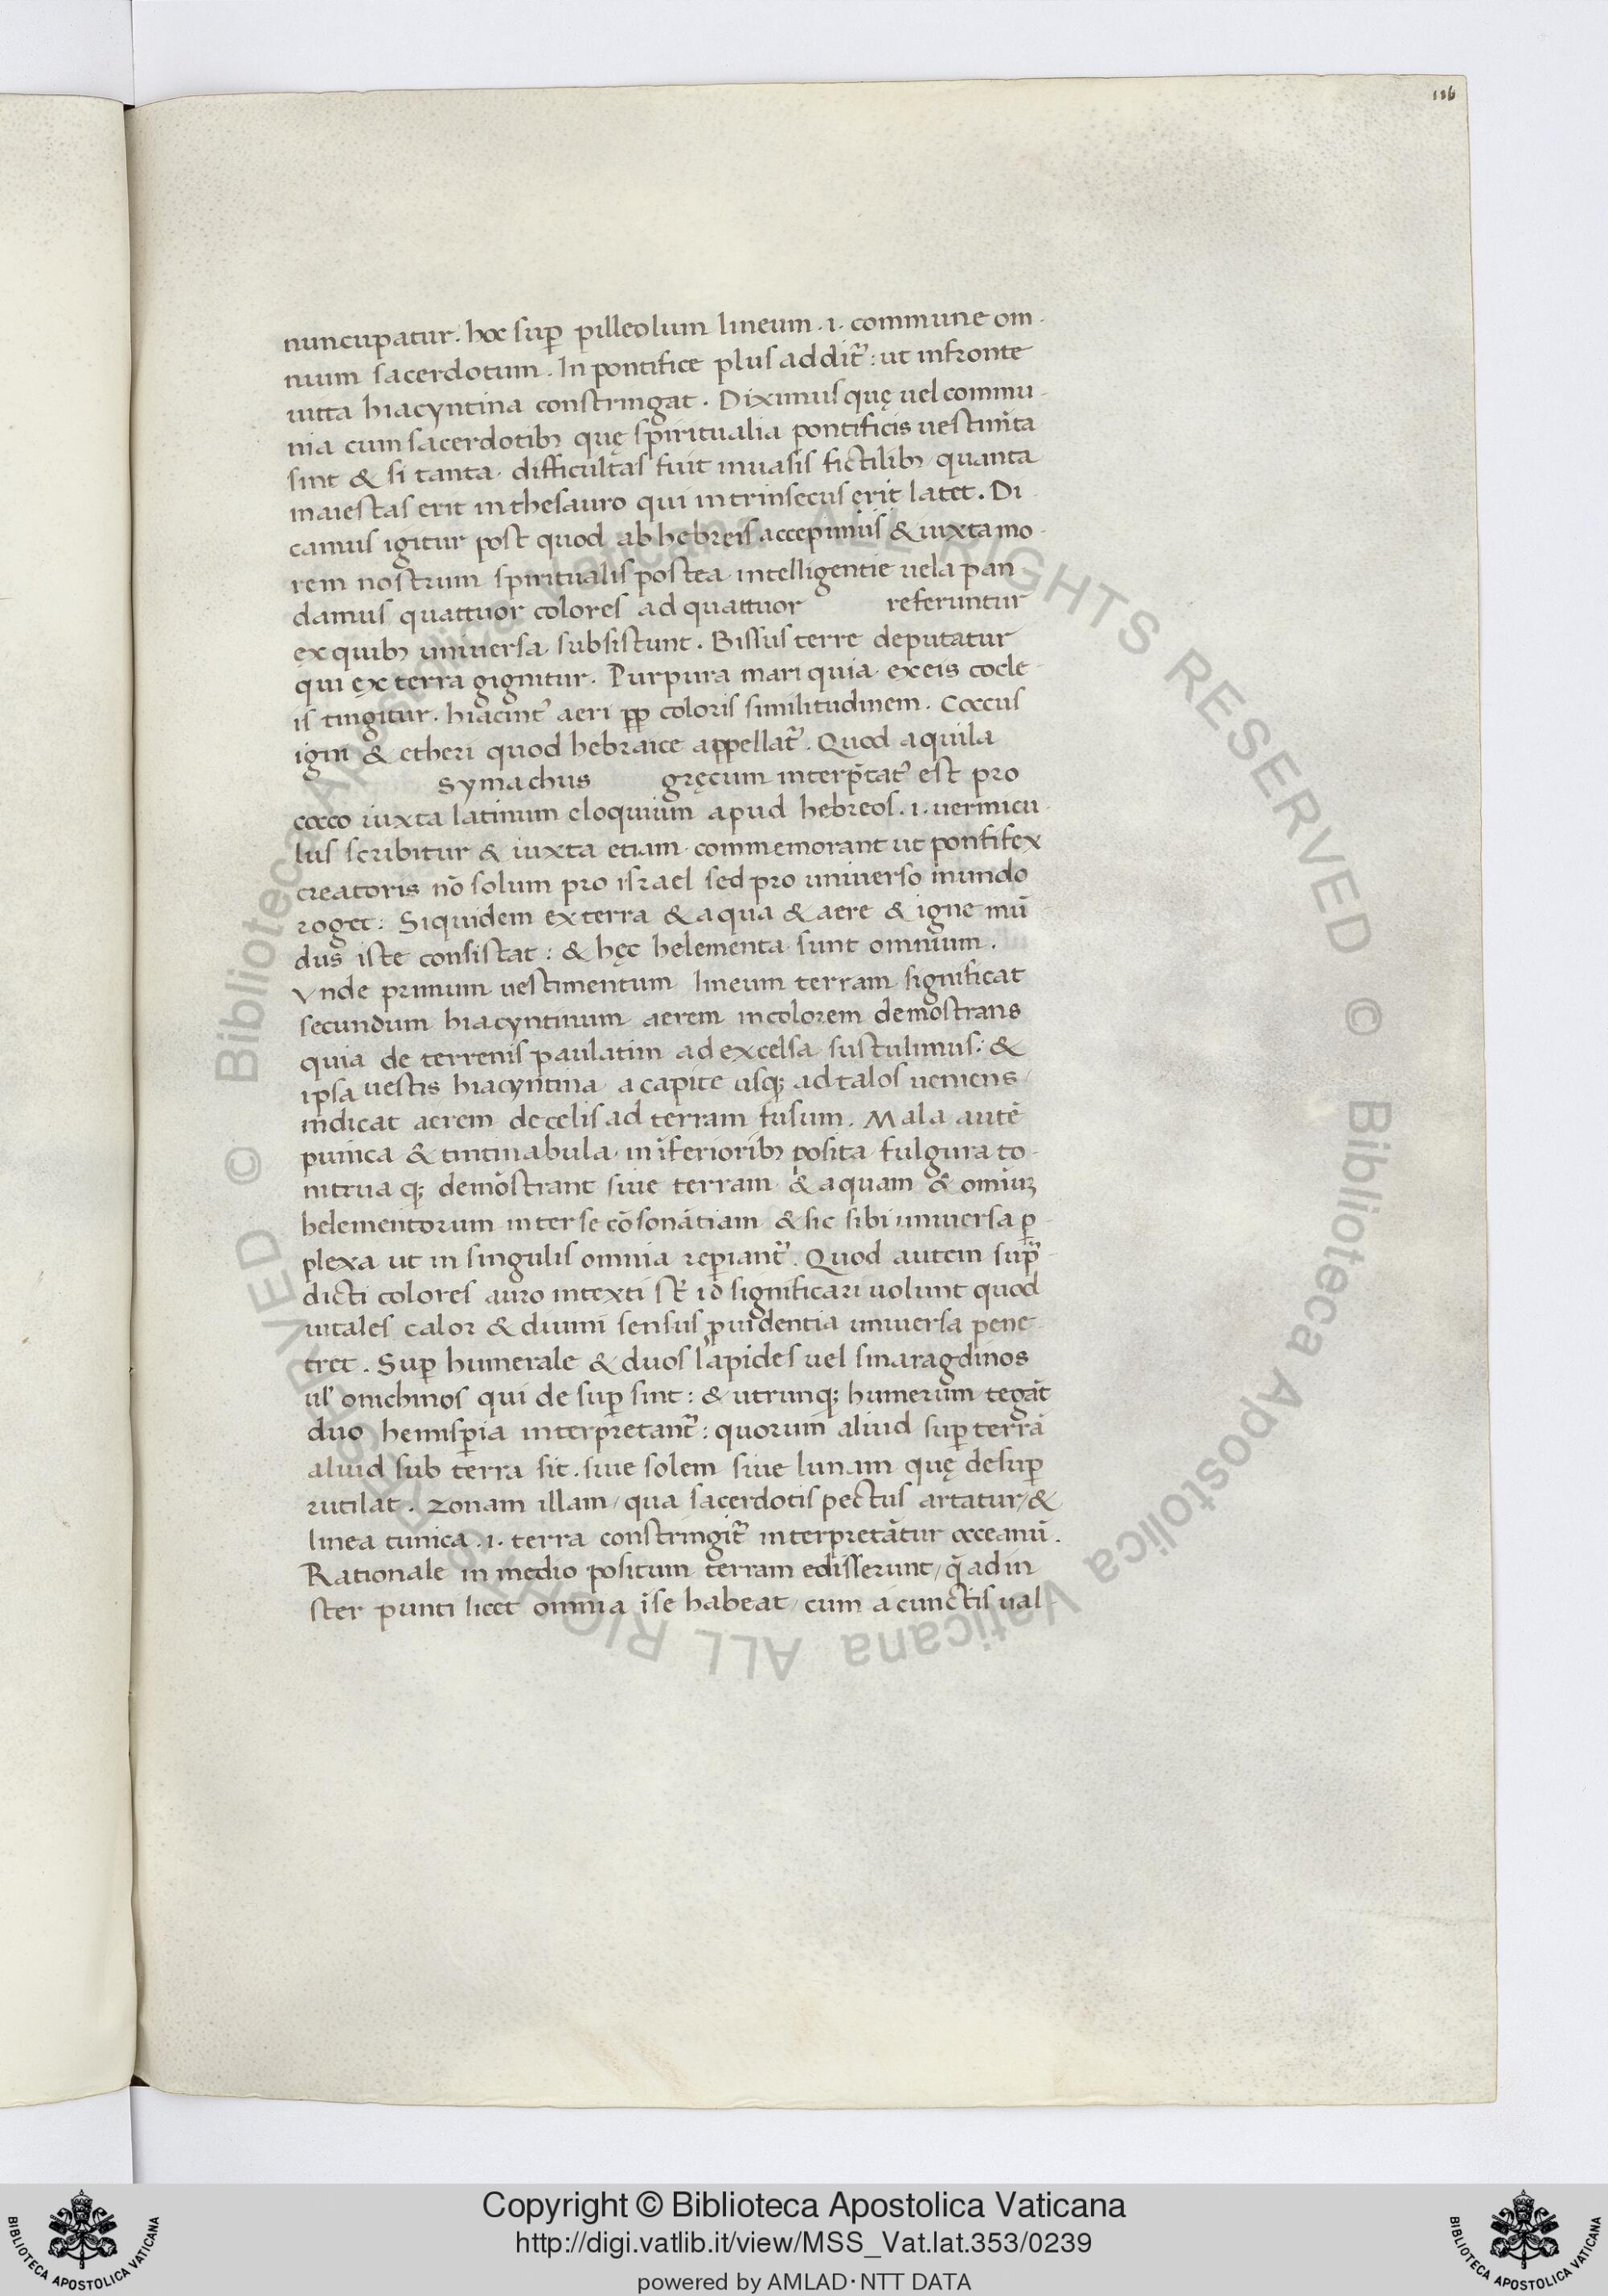 116
nuncupatur. hoc sup̄ pilleolum lineum .i. commune om
nium sacerdotum. In pontifice plus addit̃: ut infronte
uitta hiacyntina constringat. Diximus quę uel commu
nia cum sacerdotibꝫ quę spiritualia pontificis uestim̄ta
sint & si tanta difficultas fuit inuasis fictilibꝫ quanta
maiestas erit inthesauro qui intrinsecus erit latet. Di
camus igitur post quod abhebreis accepimus & iuxtamo
rem nostrum spiritualis postea intelligentie uela pan
damus quattuor colores ad quattuor referuntur
ex quibꝫ uniuersa subsistunt. Bissus terre deputatur
qui ex terra gignitur. Purpura mari quia exeis cocle
is tingitur. hiacint᾽ aeri ꝓp̄ coloris similitudinem. Coccus
igni & etheri quod hebraice appellat̃. Quod aquila
Symachus gręcum interp̄tat᾽ est pro
cocco iuxta latinum eloquium apud hebreos .i. uermicu
lus scribitur & iuxta etiam commemorant ut pontifex
creatoris nō solum pro israel sed pro uniuerso mundo
roget: Siquidem exterra & aqua & aere & igne mū
dus iste consistat: & hęc helementa sunt omnium.
Vnde primum uestimentum lineum terram significat
secundum hiacyntinum aerem incolorem demōstrans
quia de terrenis paulatim ad excelsa sustulimus: &
ipsa uestis hiacyntina a capite usqꝫ adtalos ueniens
indicat aerem decelis ad terram fusum. Mala autē
punica & tintinabula inīferioribꝫ posita fulgura to
nitruaqꝫ demōstrant siue terram & aquam & omniuꝫ
helementorum inter se cōsonātiam & sic sibi uniuersa ꝑ
plexa ut in singulis omnia reperiant̃. Quod autem sup̃
dicti colores auro intexti st̄ id significari uolunt quod
uitales calor & diuini sensus ꝓuidentia uniuersa pene
tret. Sup̄ humerale & duos lapides uel smaragdinos
ul᾽ onichinos qui de sup̄ sint: & utrunqꝫ humerum tegāt
duo hemisp̄ia interpretant̃: quorum aliud sup̄ terrā
aliud sub terra sit. siue solem siue lunam quę desup̄
rutilat. zonam illam / qua sacerdotis pectus artatur / &
linea tunica .i. terra constringit̃ interpretātur occeanū.
Rationale in medio positum terram edisserunt / q̄ ad in
ster puncti licet omnia īse habeat / cum a cunctis ual
Copyright © Biblioteca Apostolica Vaticana
http://digi.vatlib.it/view/MSS_Vat.lat.353/0239
powered by AMLAD·NTT DATA
BIBLIOTECA APOSTOLICA VATICANA
BIBLIOTECA APOSTOLICA VATICANA
© Biblioteca Apostolica Vaticana ALL RIGHTS RESERVED © Biblioteca Apostolica Vaticana ALL RIGHTS RESERVED